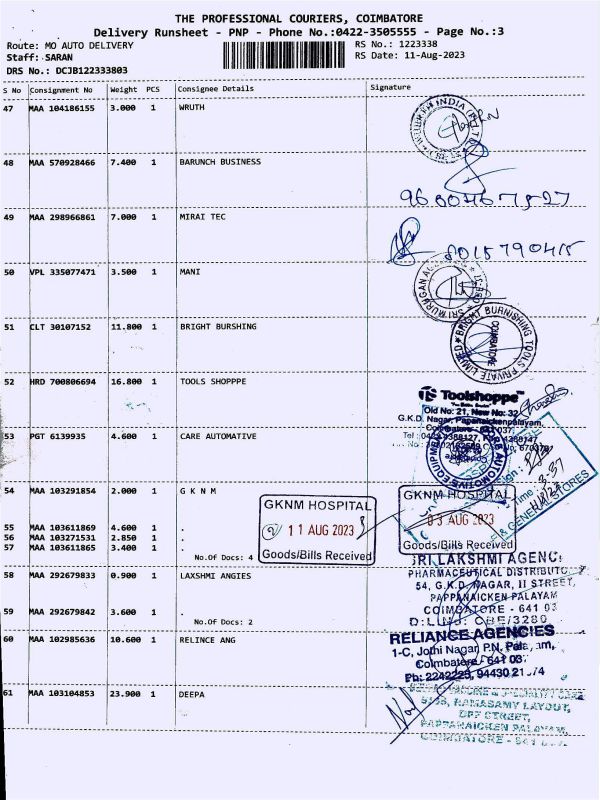 THE PROFESSIONAL COURIERS, COIMBATORE
Delivery Runsheet - PNP - Phone No.:0422-3505555 - Page No.:3
Route: MO AUTO DELIVERY
RS No.: 1223338
Staff: SARAN
RS Date: 11-Aug-2023
DRS No.: DCJB122333803
S No Consignment No Weight PCS Consignee Details Signature
47 MAA 104186155 3.000 1 WRUTH
48 MAA 570928466 7.400 1 BARUNCH BUSINESS
49 MAA 298966861 7.000 1 MIRAI TEC
8015790415
50 VPL 335077471 3.500 1 MANI
51 CLT 30107152 11.800 1 BRIGHT BURSHING
BRIGHT BURNISHING TOOLS PRIVATE LIMITED
COIMBATORE
52 HRD 700806694 16.800 1 TOOLS SHOPPPE
Toolshoppe
Old No: 21, New No: 32
G.K.D. Nagar, Pappanaickenpalayam,
Coimbatore - 641 037
53 PGT 6139935 4.600 1 CARE AUTOMATIVE
54 MAA 103291854 2.000 1 G K N M
GKNM HOSPITAL
11 AUG 2023
Goods/Bills Received
GKNM HOSPITAL
03 AUG 2023
Goods/Bills Received
& GENERAL STORES
55 MAA 103611869 4.600 1 .
56 MAA 103271531 2.850 1 .
57 MAA 103611865 3.400 1 .
No.Of Docs: 4
58 MAA 292679833 0.900 1 LAXSHMI ANGIES
SRI LAKSHMI AGENC
PHARMACEUTICAL DISTRIBUTO
54, G.K.D. NAGAR, II STREET,
PAPPANAICKEN PALAYAM
COIMBATORE - 641 03
59 MAA 292679842 3.600 1
No.Of Docs: 2
60 MAA 102985636 10.600 1 RELINCE ANG
RELIANCE AGENCIES
1-C, Jothi Nagar, P.N. Palayam,
Coimbatore - 641 03
Ph: 2242229, 94430
61 MAA 103104853 23.900 1 DEEPA
RAMASAMY LAYOUT,
STREET,
PAPPANAICKEN PALAYAM,
COIMBATORE - 641